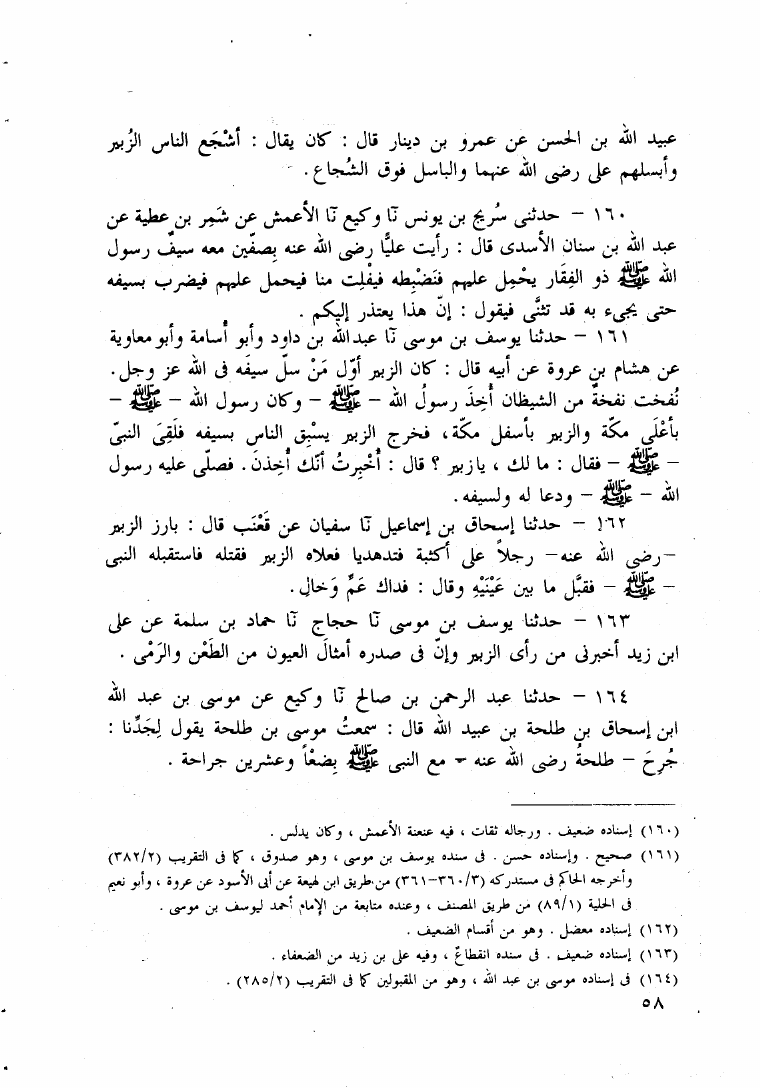 عبيد الله بن الحسن عن عمرو بن دينار قال : كان يقال : أشْجَع الناس الزُبير
وأبسلهم على رضى الله عنهما والباسل فوق الشُجاع .
١٦٠ – حدثنى سُريج بن يونس نَا وكيع نَا الأعمش عن شَمِر بن عطية عن
عبد الله بن سنان الأسدى قال : رأيت عليًّا رضى الله عنه بِصفّين معه سيفُ رسول
الله ﷺ ذو الفِقَار يحْمِل عليهم فنَضْبِطه فيفْلِت منا فيحمل عليهم فيضرب بسيفه
حتى يجىء به قد تثنَّى فيقول : إنّ هذا يعتذر إليكم .
١٦١ – حدثنا يوسف بن موسى نَا عبدالله بن داود وأبو أسامة وأبو معاوية
عن هشام بن عروة عن أبيه قال : كان الزبير أوّل مَنْ سلّ سيفَه فى الله عز وجل .
نُفخت نفخةٌ من الشيظان أُخِذَ رسولُ الله – ﷺ – وكان رسول الله – ﷺ –
بأعْلَى مكّة والزبير بأسفل مكّة ، فخرج الزبير يسْبِق الناس بسيفه فلَقِىَ النبىّ
– ﷺ – فقال : ما لك ، يازبير ؟ قال : أُخْبِرتُ أنّك أُخِذتَ . فصلّى عليه رسول
الله – ﷺ – ودعا له ولسيفه .
١٦٢ – حدثنا إسحاق بن إسماعيل نَا سفيان عن قَعْنَب قال : بارز الزبير
–رضى الله عنه– رجلاً على أكثبة فتدهديا فعلاه الزبير فقتله فاستقبله النبى
– ﷺ – فقبَّل ما بين عَيْنَيْهِ وقال : فداك عَمٌّ وَخال .
١٦٣ – حدثنا يوسف بن موسى نَا حجاج نَا حماد بن سلمة عن على
ابن زيد أخبرنى من رأى الزبير وإنّ فى صدره أمثالَ العيون من الطَعْن والرَمْى .
١٦٤ – حدثنا عبد الرحمن بن صالح نَا وكيع عن موسى بن عبد الله
ابن إسحاق بن طلحة بن عبيد الله قال : سمعتُ موسى بن طلحة يقول لِجَدِّنا :
جُرِحَ – طلحةُ رضى الله عنه – مع النبى ﷺ بِضعْاً وعشرين جراحة .
(١٦٠) إسناده ضعيف . ورجاله ثقات ، فيه عنعنة الأعمش ، وكان يدلس .
(١٦١) صحيح . وإسناده حسن . فى سنده يوسف بن موسى ، وهو صدوق ، كما فى التقريب (٣٨٢/٢)
وأخرجه الحاكم فى مستدركه (٣٦٠/٣–٣٦١) من طريق ابن لهيعة عن أبى الأسود عن عروة ، وأبو نعيم
فى الحلية (٨٩/١) من طريق المصنف ، وعنده متابعة من الإمام أحمد ليوسف بن موسى .
(١٦٢) إسناده معضل . وهو من أقسام الضعيف .
(١٦٣) إسناده ضعيف . فى سنده انقطاعٌ ، وفيه على بن زيد من الضعفاء .
(١٦٤) فى إسناده موسى بن عبد الله ، وهو من المقبولين كما فى التقريب (٢٨٥/٢) .
٥٨